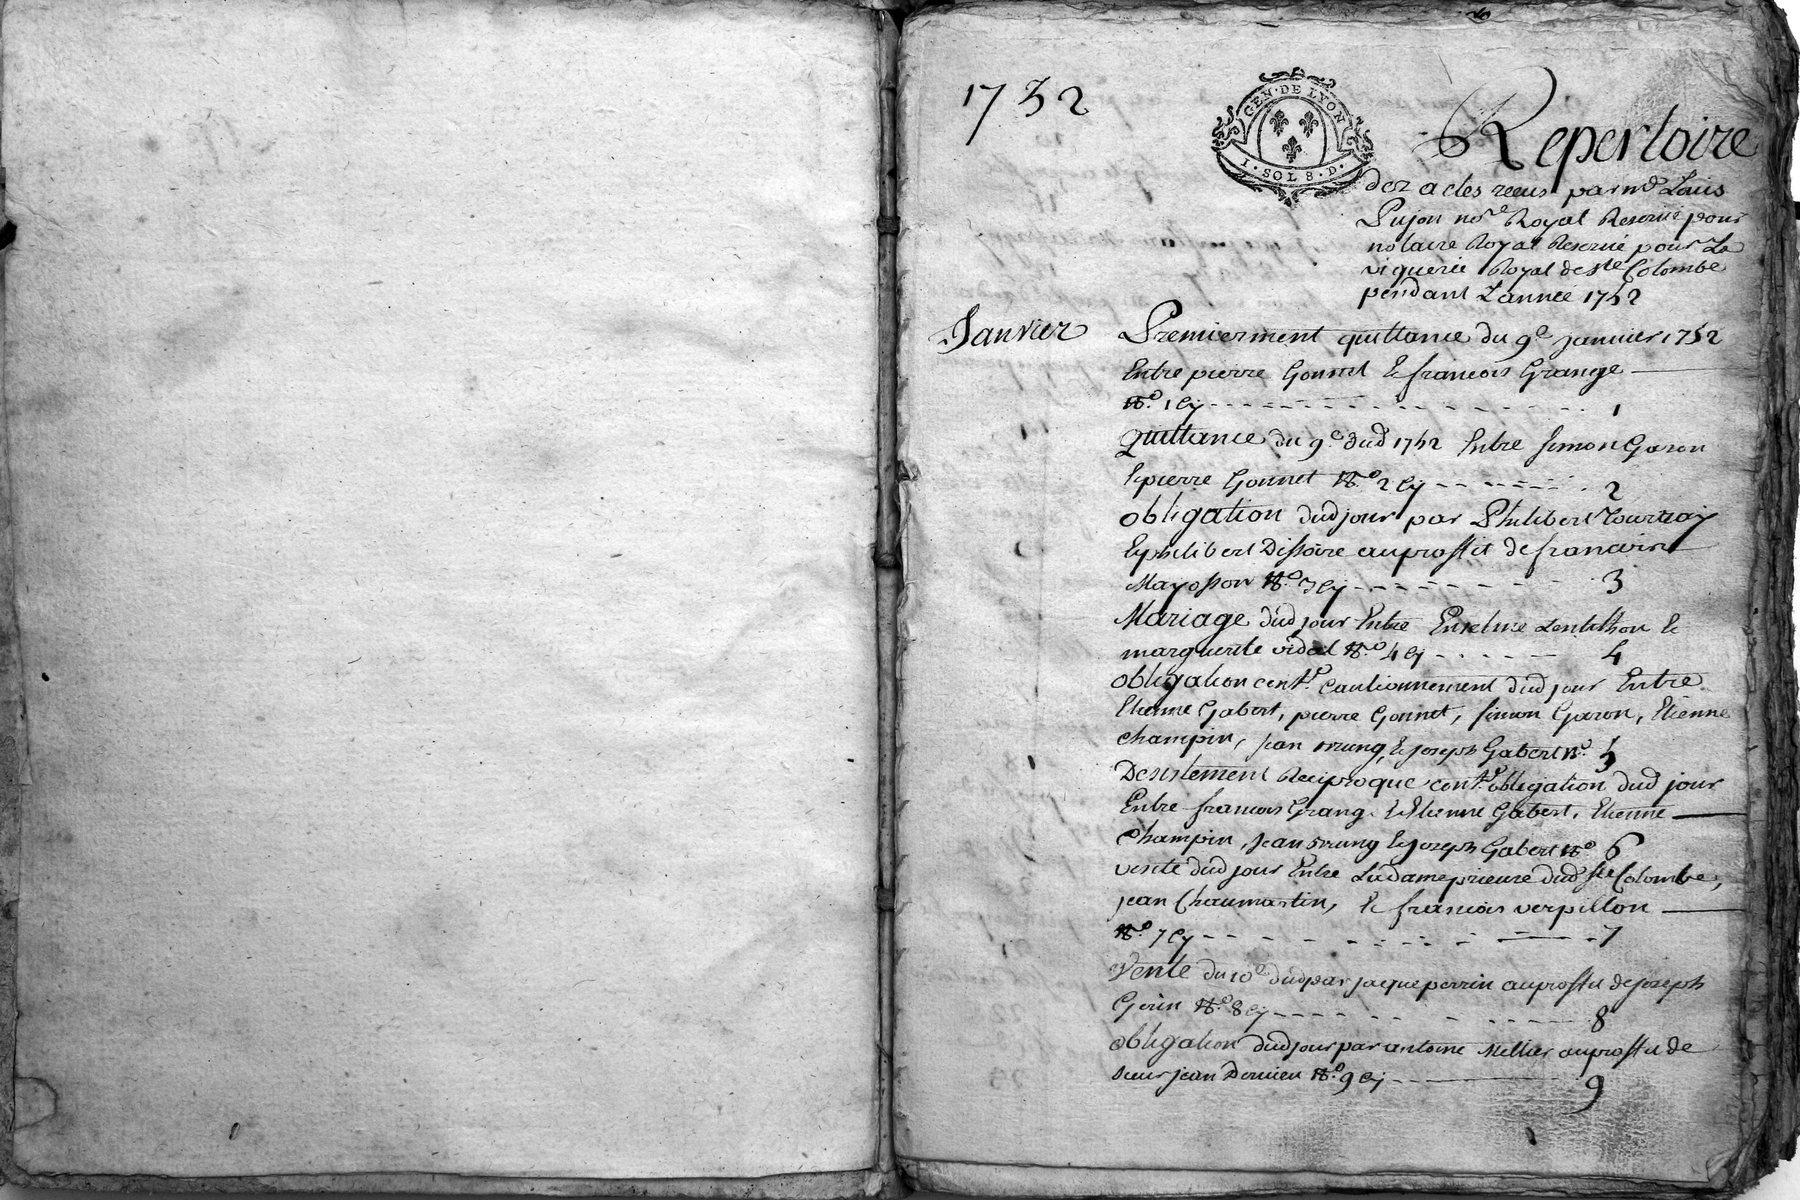 1752
GÉN. DE LYON
I. SOL 8. D.
Repertoire
dez actes receus par me Louis
Pujon nore Royal Reservé pour
notaire Royal Reservé pour La
viguerie Royal de ste Colombe
pendant L'année 1752
Janvier
Premierement quittance du 9e janvier 1752
Entre pierre Gonnet & francois Grange
No. 1 cy 1
quittance du 9e dud 1752 Entre simon Garon
& pierre Gonnet No. 2 cy 2
obligation dud jour par Philibert
& philibert Dissoire au proffit de francois
Mayosson No. 3 cy 3
Mariage dud jour Entre Enselme Lentilhon &
marguerite vidal No. 4 cy 4
obligation cont. cautionnement dud jour Entre
Etienne Gabert, pierre Gonnet, simon Garon, Etienne
champin, jean & joseph Gabert No. 5
Desistement Reciproque cont. obligation dud jour
Entre francois Grang. & Etienne Gabert, Etienne
Champin, jean & joseph Gabert No 6
vente dud jour Entre La dame prieure dud ste Colombe,
jean Chaumartin, & francois verpillon
No. 7 cy 7
Vente du 10e dud par jacque perrin au proffit de joseph
Gerin No. 8 cy 8
obligation dud jour par antoine Mellier au proffit de
sieur jean No. 9 cy 9